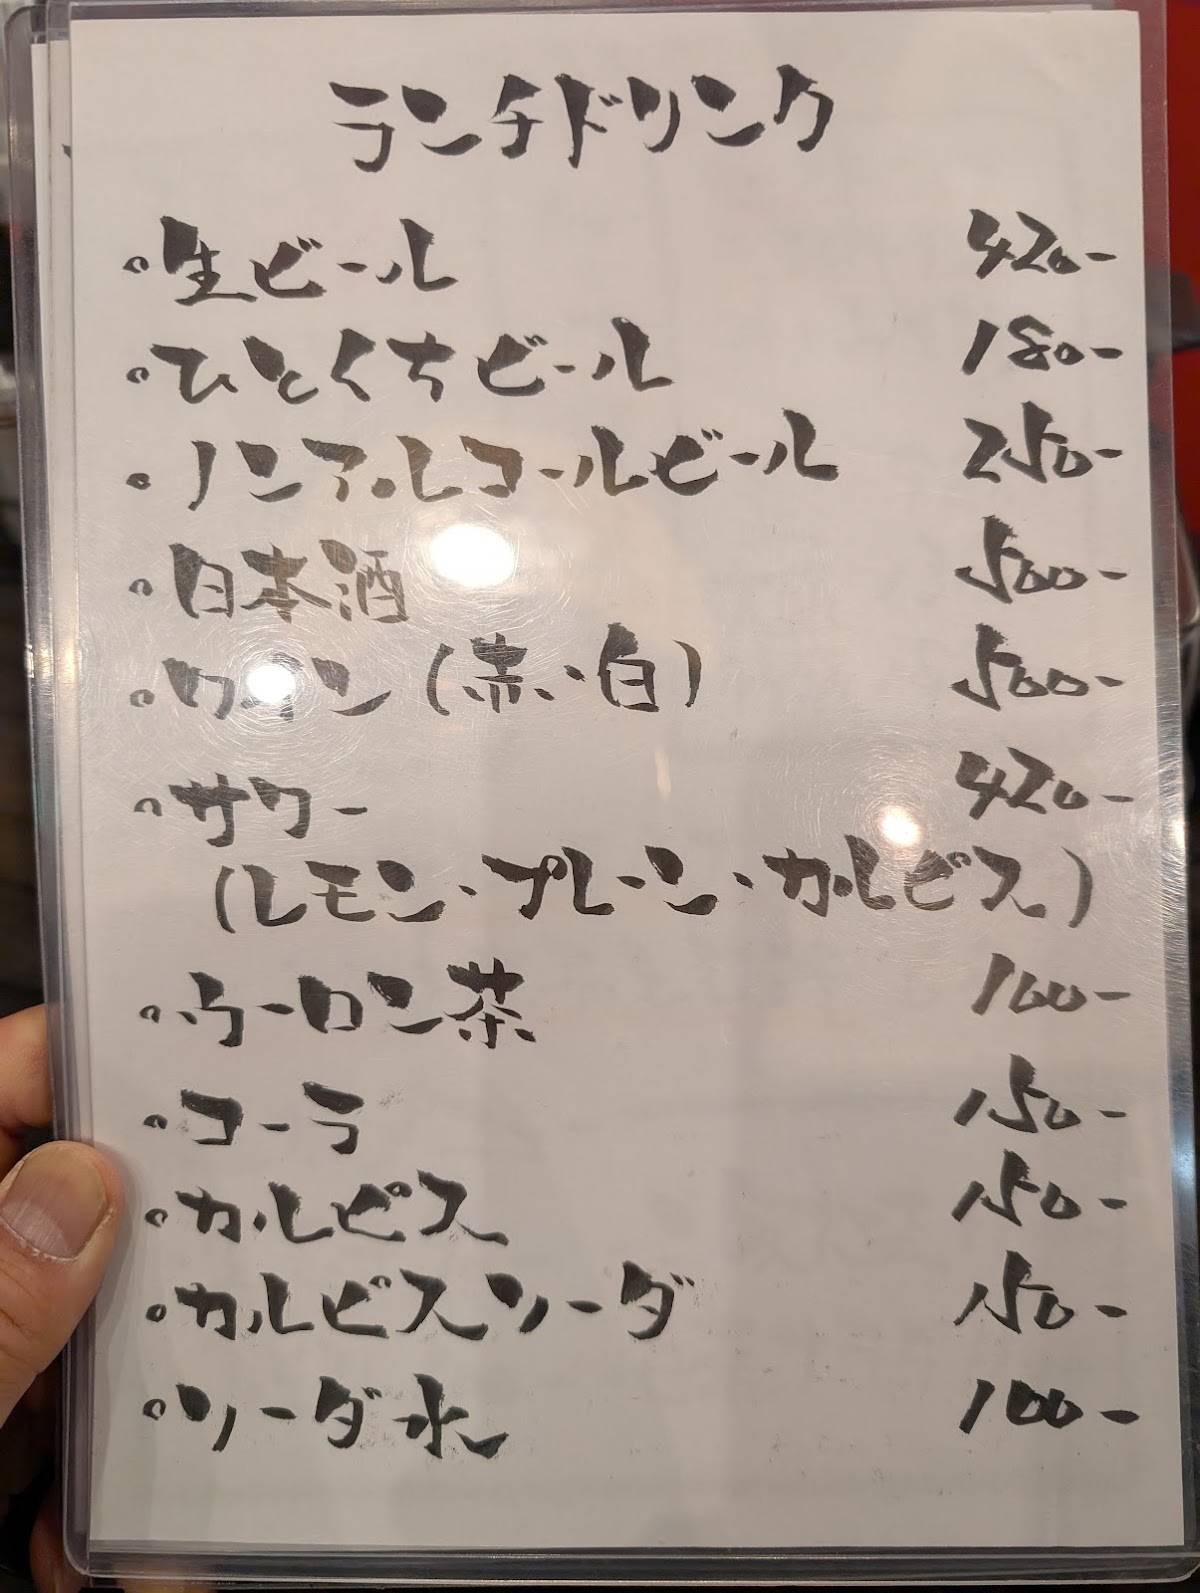 ランチドリンク
。生ビール 420-
。ひとくちビール 180-
。ノンアルコールビール 250-
。日本酒 500-
。ワイン(赤・白) 500-
。サワー 420-
(レモン・プレーン・カルピス)
。ウーロン茶 100-
。コーラ 150-
。カルピス 150-
。カルピスソーダ 150-
。ソーダ水 100-